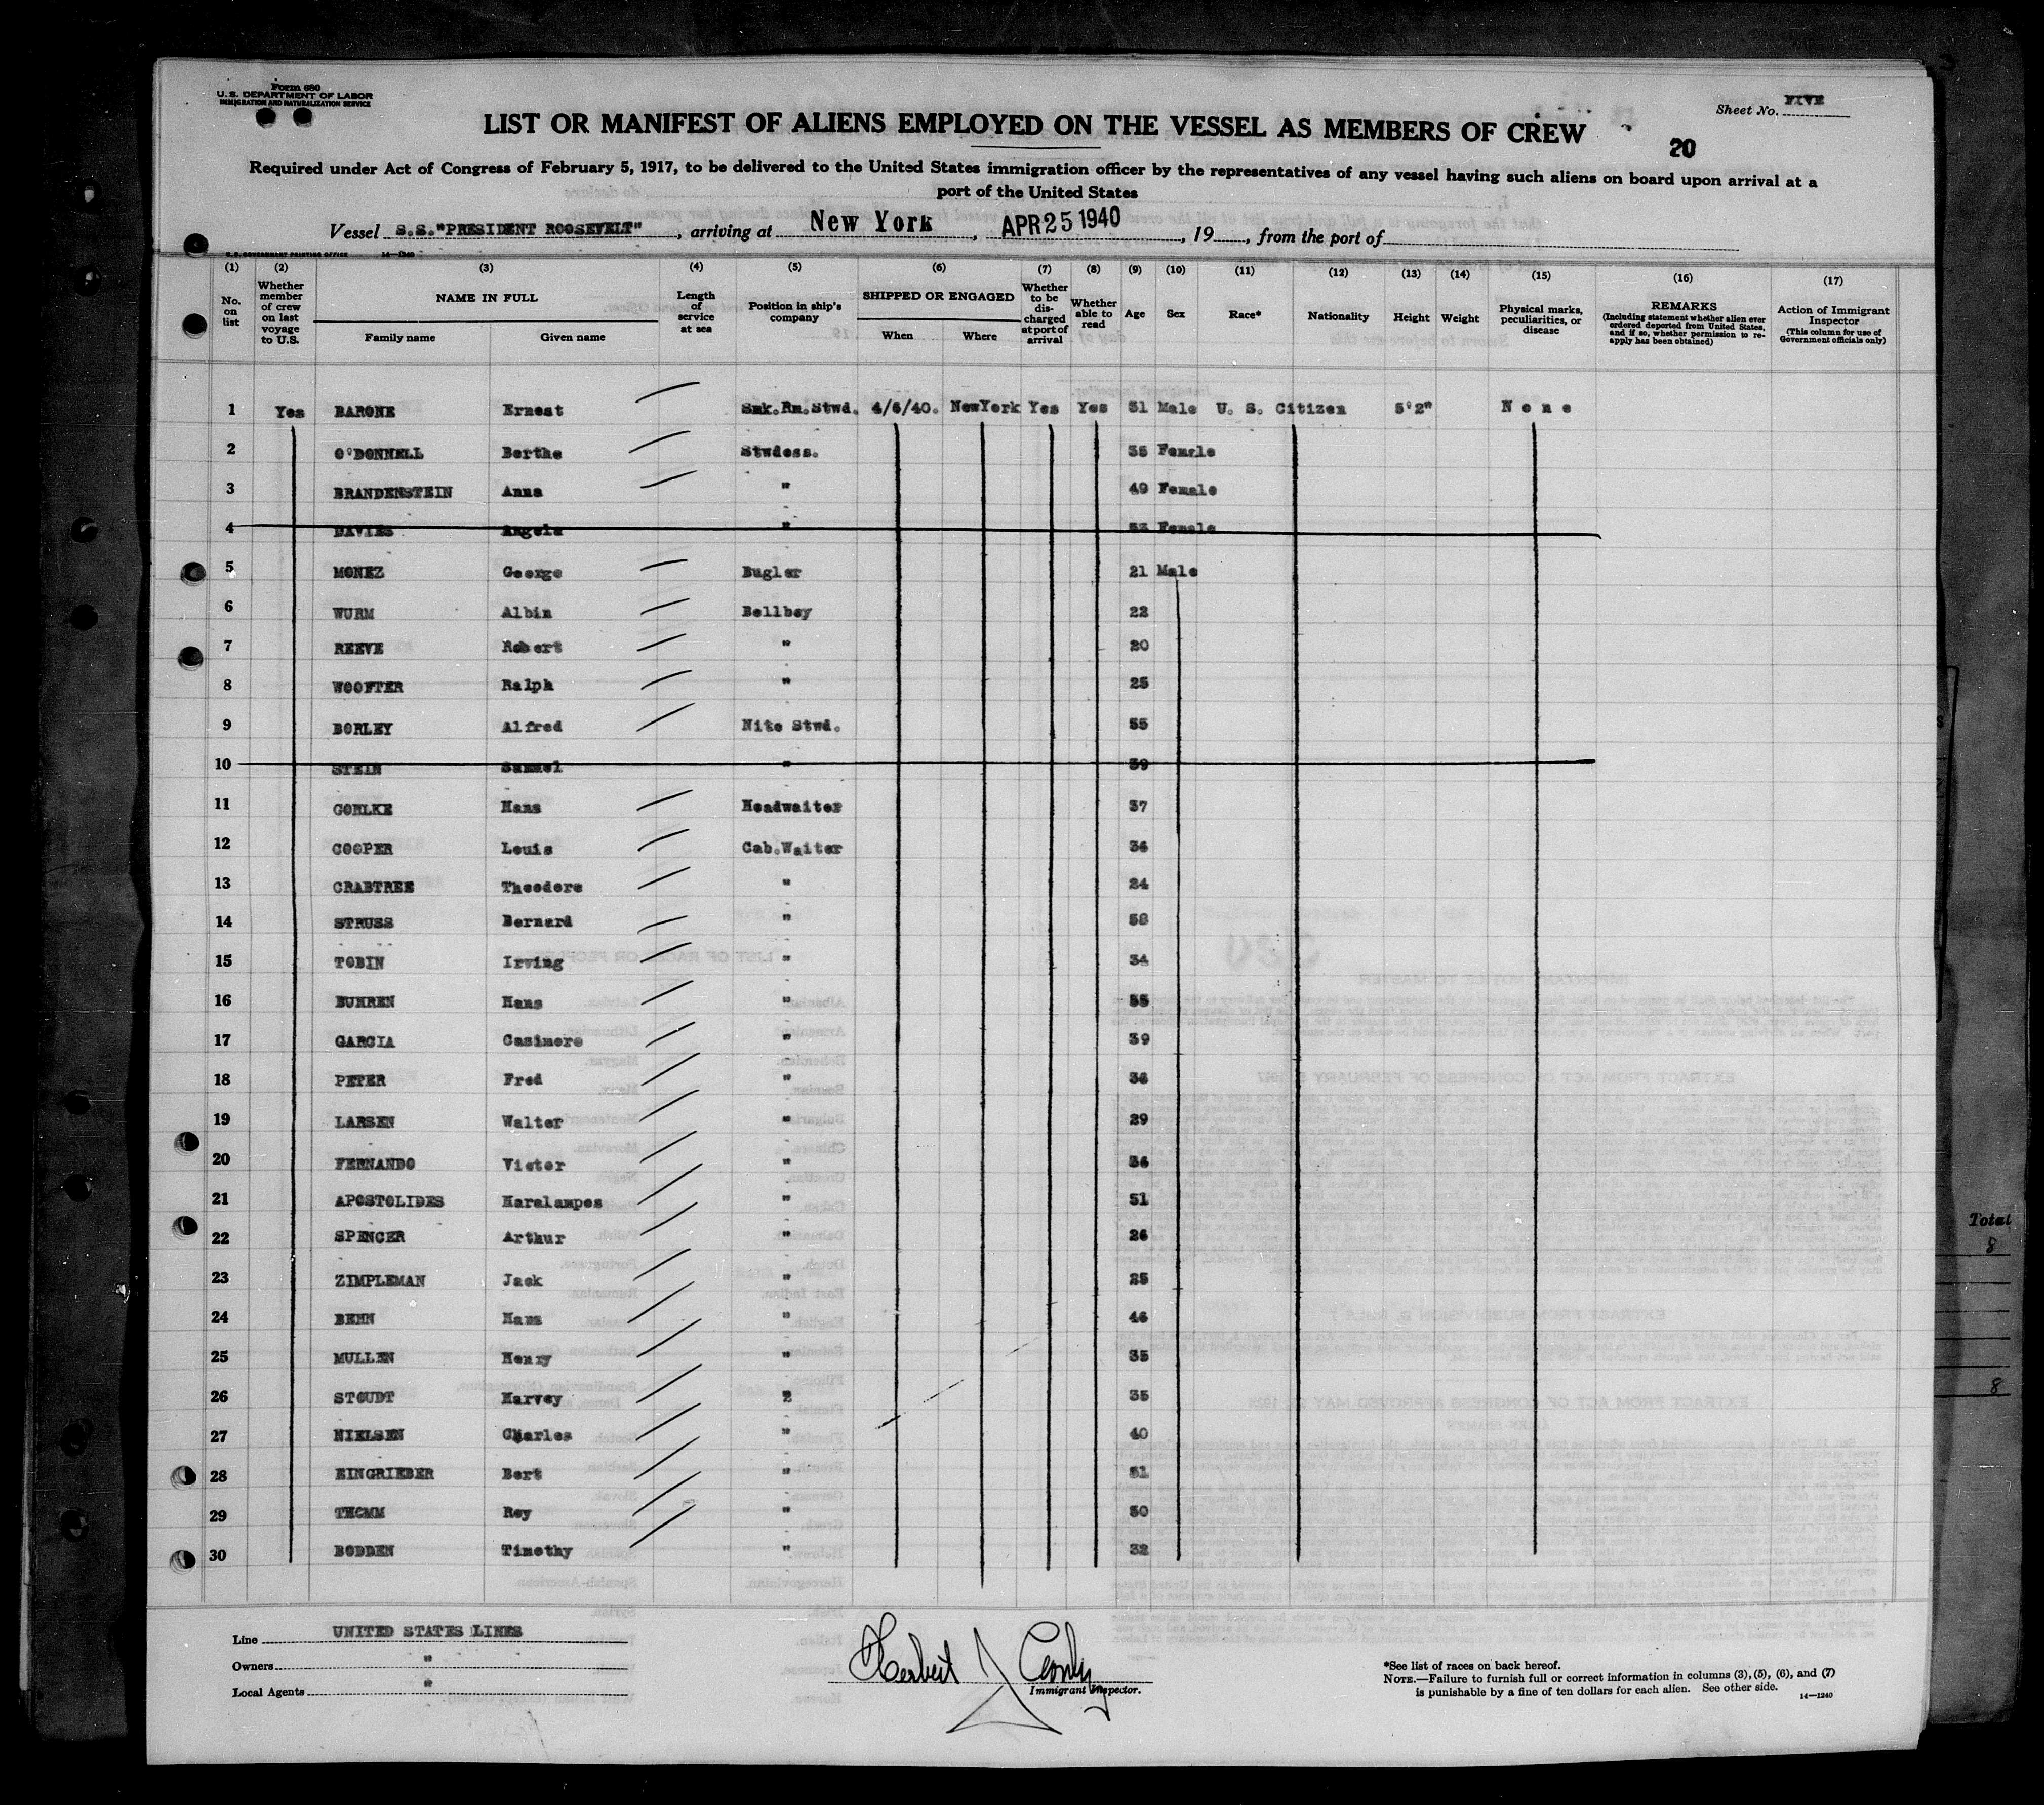 Form 680
U. S. DEPARTMENT OF LABOR
IMMIGRATION AND NATURALIZATION SERVICE
Sheet No. FIVE
LIST OR MANIFEST OF ALIENS EMPLOYED ON THE VESSEL AS MEMBERS OF CREW
20
Required under Act of Congress of February 5, 1917, to be delivered to the United States immigration officer by the representatives of any vessel having such aliens on board upon arrival at a
port of the United States
Vessel S.S."PRESIDENT ROOSEVELT", arriving at New York, APR 25 1940, 19, from the port of
U. S. GOVERNMENT PRINTING OFFICE 14—1240
(1) (2) (3) (4) (5) (6) (7) (8) (9) (10) (11) (12) (13) (14) (15) (16) (17)
No. on list
Whether member of crew on last voyage to U.S.
NAME IN FULL
Family name Given name
Length of service at sea
Position in ship's company
SHIPPED OR ENGAGED
When Where
Whether to be discharged at port of arrival
Whether able to read
Age Sex Race* Nationality Height Weight
Physical marks, peculiarities, or disease
REMARKS
(Including statement whether alien ever ordered deported from United States, and if so, whether permission to re-apply has been obtained)
Action of Immigrant Inspector
(This column for use of Government officials only)
1 Yes BARONE Ernest Smk.Rm.Stwd. 4/6/40. NewYork Yes Yes 31 Male U. S. Citizen 5'2" None
2 O'DONNELL Berthe Stwdess. 35 Female
3 BRANDENSTEIN Anna " 49 Female
4 DAVIES Angela " 53 Female
5 MONEZ George Bugler 21 Male
6 WURM Albin Bellboy 22
7 REEVE Robert " 20
8 WOOFTER Ralph " 25
9 BORLEY Alfred Nite Stwd. 55
10 STEIN Samuel " 39
11 GORLKE Hans Headwaiter 37
12 COOPER Louis Cab.Waiter 36
13 CRABTREE Theodore " 24
14 STRUSS Bernard " 58
15 TOBIN Irving " 34
16 BUHREN Hans " 55
17 GARCIA Casimere " 39
18 PETER Fred " 36
19 LARSEN Walter " 29
20 FERNANDO Victor " 36
21 APOSTOLIDES Haralampos " 51
22 SPENCER Arthur " 26
23 ZIMPLEMAN Jack " 25
24 BEHN Hans " 46
25 MULLEN Henry " 35
26 STOUDT Harvey 2 35
27 NIELSEN Charles " 40
28 EINGRIEBER Bert " 51
29 THOMM Roy " 50
30 BODDEN Timothy " 32
Total
8
8
Line UNITED STATES LINES
Owners "
Local Agents "
Herbert J
Immigrant Inspector.
*See list of races on back hereof.
NOTE.—Failure to furnish full or correct information in columns (3), (5), (6), and (7)
is punishable by a fine of ten dollars for each alien. See other side.
14—1240